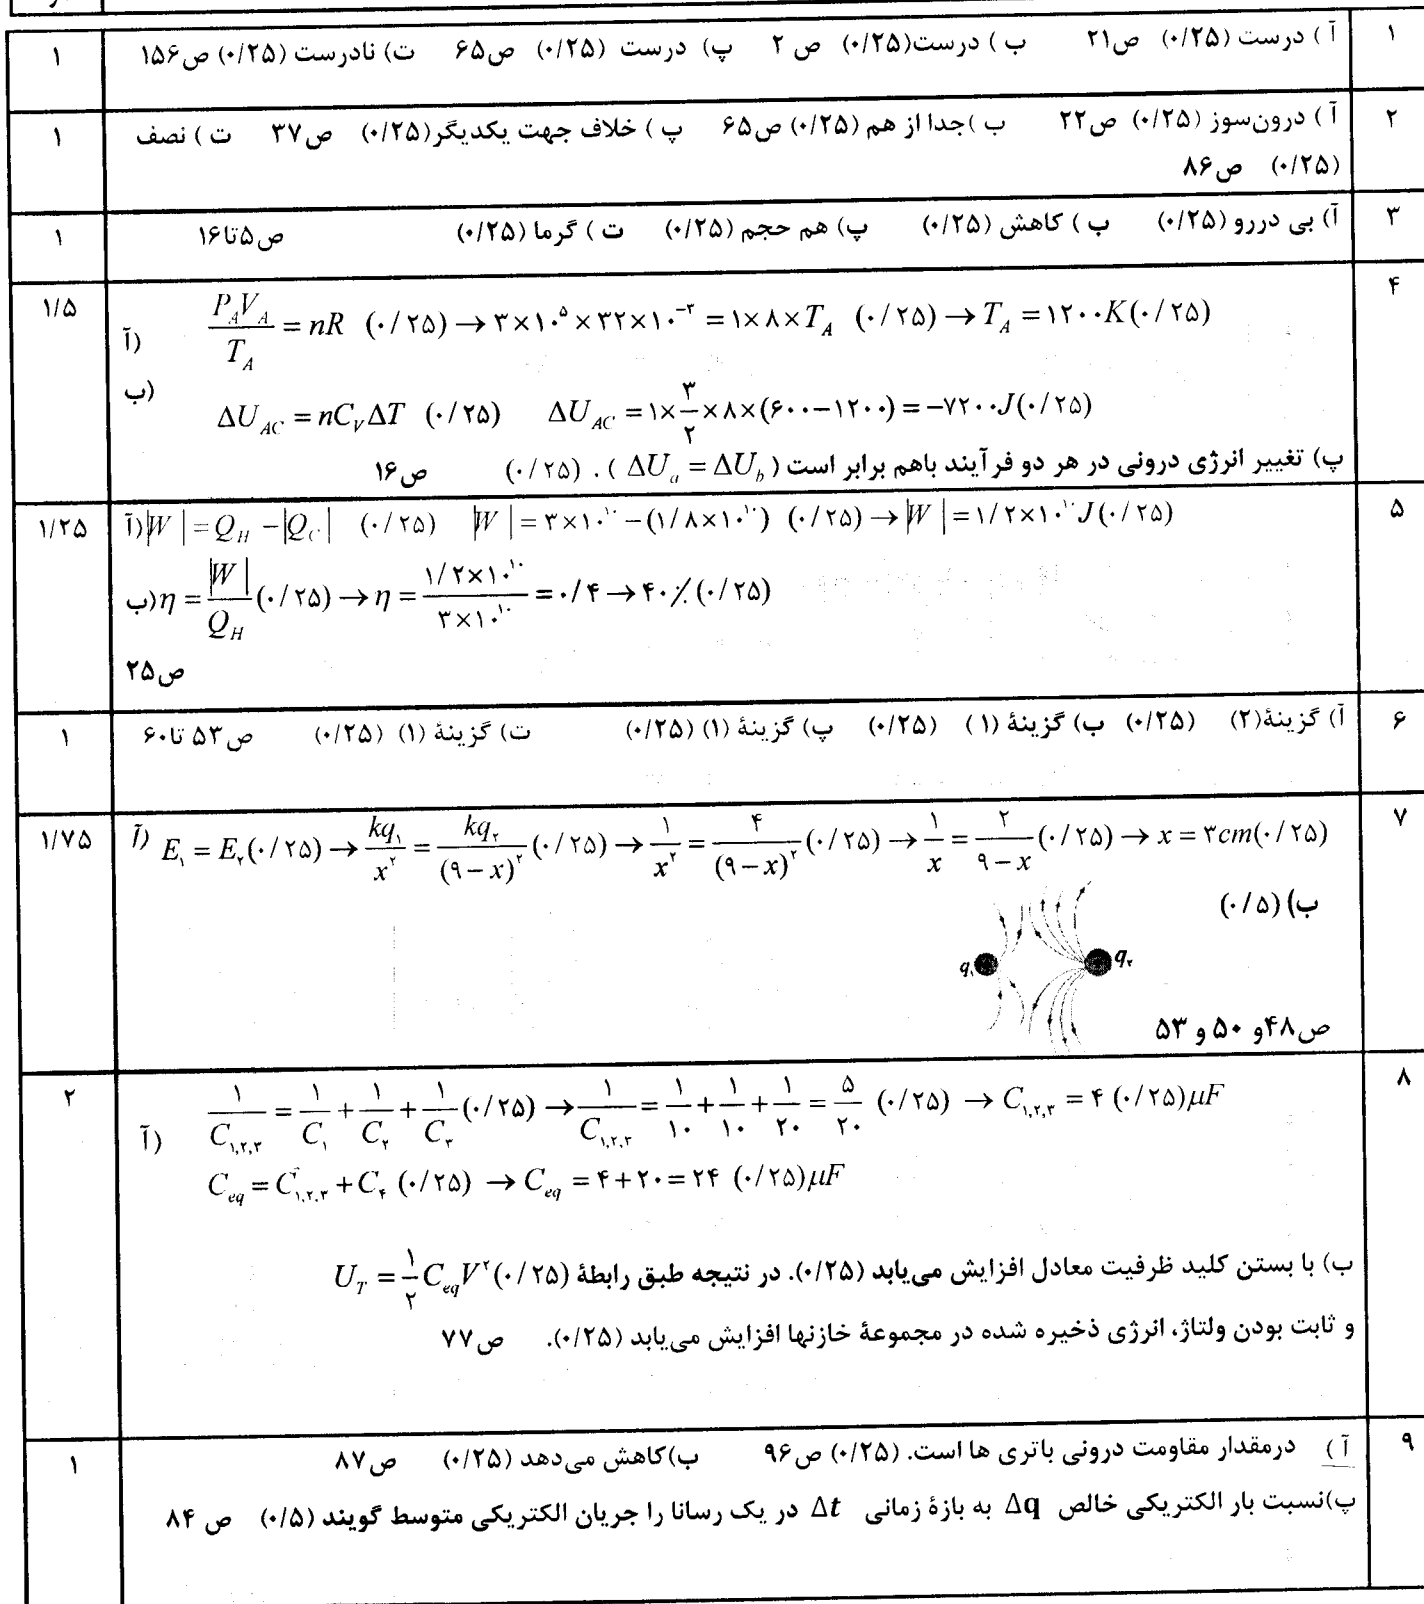 ۱ آ ) درست (۰/۲۵) ص۲۱ ب ) درست(۰/۲۵) ص ۲ پ) درست (۰/۲۵) ص۶۵ ت) نادرست (۰/۲۵) ص۱۵۶ ۱
۲ آ ) درون‌سوز (۰/۲۵) ص۲۲ ب )جدا از هم (۰/۲۵) ص۶۵ پ ) خلاف جهت یکدیگر(۰/۲۵) ص۳۷ ت ) نصف ۱
(۰/۲۵) ص۸۶
۳ آ) بی دررو (۰/۲۵) ب ) کاهش (۰/۲۵) پ) هم حجم (۰/۲۵) ت ) گرما (۰/۲۵) ص۵تا۱۶ ۱
۴ ۱/۵
آ) P_A V_A / T_A = nR (۰/۲۵) → ۳×۱۰^۵ × ۳۲×۱۰^-۳ = ۱×۸×T_A (۰/۲۵) → T_A = ۱۲۰۰K(۰/۲۵)
ب) ΔU_AC = nC_V ΔT (۰/۲۵) ΔU_AC = ۱×۳/۲×۸×(۶۰۰−۱۲۰۰) = −۷۲۰۰J(۰/۲۵)
پ) تغییر انرژی درونی در هر دو فرآیند باهم برابر است ( ΔU_a = ΔU_b ) . (۰/۲۵) ص۱۶
۵ ۱/۲۵
آ) |W| = Q_H − |Q_C| (۰/۲۵) |W| = ۳×۱۰^۱۰ − (۱/۸×۱۰^۱۰) (۰/۲۵) → |W| = ۱/۲×۱۰^۱۰ J(۰/۲۵)
ب) η = |W| / Q_H (۰/۲۵) → η = ۱/۲×۱۰^۱۰ / ۳×۱۰^۱۰ = ۰/۴ → ۴۰٪(۰/۲۵)
ص۲۵
۶ آ) گزینهٔ(۲) (۰/۲۵) ب) گزینهٔ (۱ ) (۰/۲۵) پ) گزینهٔ (۱) (۰/۲۵) ت) گزینهٔ (۱) (۰/۲۵) ص۵۳ تا۶۰ ۱
۷ ۱/۷۵
آ) E_۱ = E_۲(۰/۲۵) → kq_۱ / x^۲ = kq_۲ / (۹−x)^۲ (۰/۲۵) → ۱ / x^۲ = ۴ / (۹−x)^۲ (۰/۲۵) → ۱ / x = ۲ / ۹−x (۰/۲۵) → x = ۳cm(۰/۲۵)
ب) (۰/۵)
q_۱ q_۲
ص۴۸و ۵۰ و ۵۳
۸ ۲
آ) ۱/C_۱,۲,۳ = ۱/C_۱ + ۱/C_۲ + ۱/C_۳ (۰/۲۵) → ۱/C_۱,۲,۳ = ۱/۱۰ + ۱/۱۰ + ۱/۲۰ = ۵/۲۰ (۰/۲۵) → C_۱,۲,۳ = ۴ (۰/۲۵)μF
C_eq = C_۱,۲,۳ + C_۴ (۰/۲۵) → C_eq = ۴+۲۰ = ۲۴ (۰/۲۵)μF
ب) با بستن کلید ظرفیت معادل افزایش می‌یابد (۰/۲۵). در نتیجه طبق رابطهٔ U_T = ۱/۲ C_eq V^۲ (۰/۲۵)
و ثابت بودن ولتاژ، انرژی ذخیره شده در مجموعهٔ خازنها افزایش می‌یابد (۰/۲۵). ص۷۷
۹ آ ) درمقدار مقاومت درونی باتری ها است. (۰/۲۵) ص۹۶ ب)کاهش می‌دهد (۰/۲۵) ص۸۷ ۱
پ)نسبت بار الکتریکی خالص Δq به بازهٔ زمانی Δt در یک رسانا را جریان الکتریکی متوسط گویند (۰/۵) ص ۸۴